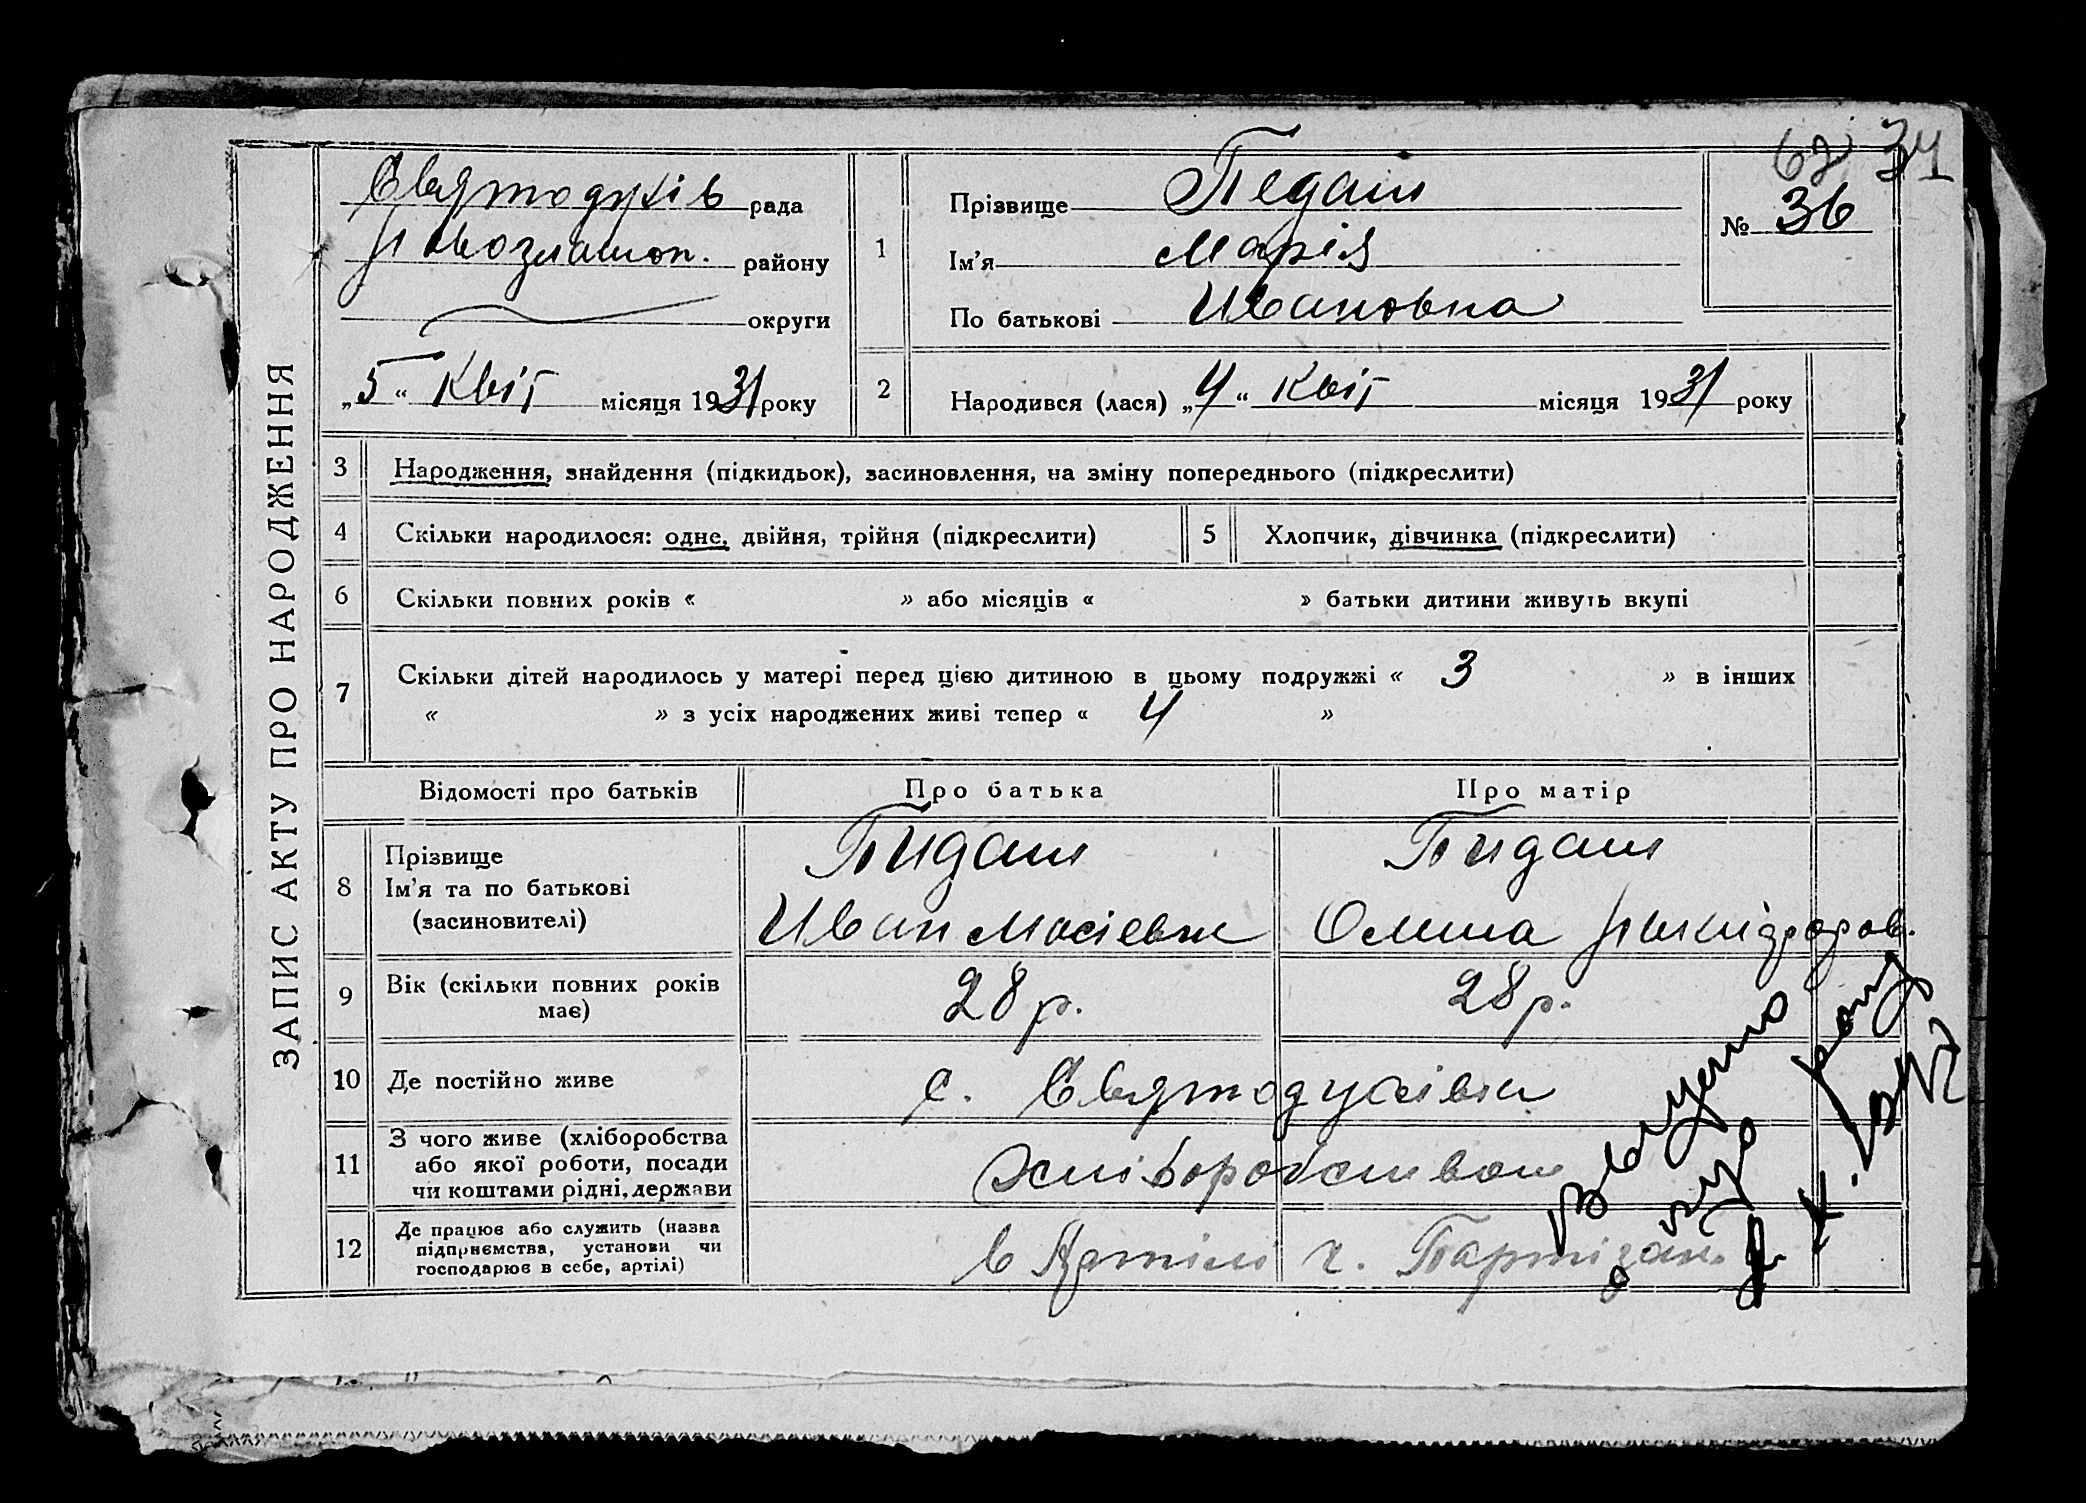 62 34
ЗАПИС АКТУ ПРО НАРОДЖЕННЯ
Святодухів рада
Новозлатоп. району
округи
„5“ Квіт місяця 1931 року
1
Прізвище Педаш
Ім'я Марія
По батькові Ивановна
№ 36
2 Народився (лася) „4“ Квіт місяця 1931 року
3 Народження, знайдення (підкидьок), засиновлення, на зміну попереднього (підкреслити)
4 Скільки народилося: одне, двійня, трійня (підкреслити) 5 Хлопчик, дівчинка (підкреслити)
6 Скільки повних років « » або місяців « » батьки дитини живуть вкупі
7 Скільки дітей народилось у матері перед цією дитиною в цьому подружжі « 3 » в інших
« » з усіх народжених живі тепер « 4 »
Відомості про батьків Про батька Про матір
8 Прізвище
Ім'я та по батькові
(засиновителі)
Пидаш
Иван Мосіевич
Пидаш
Олина Никидфоров.
9 Вік (скільки повних років має) 28 р. 28 р.
10 Де постійно живе с. Святодухівки
11 З чого живе (хліборобства
або якої роботи, посади
чи коштами рідні, держави
Хліборобством
12 Де працює або служить (назва
підприємства, установи чи
господарює в себе, артілі)
в Артілі ч. Партізан.